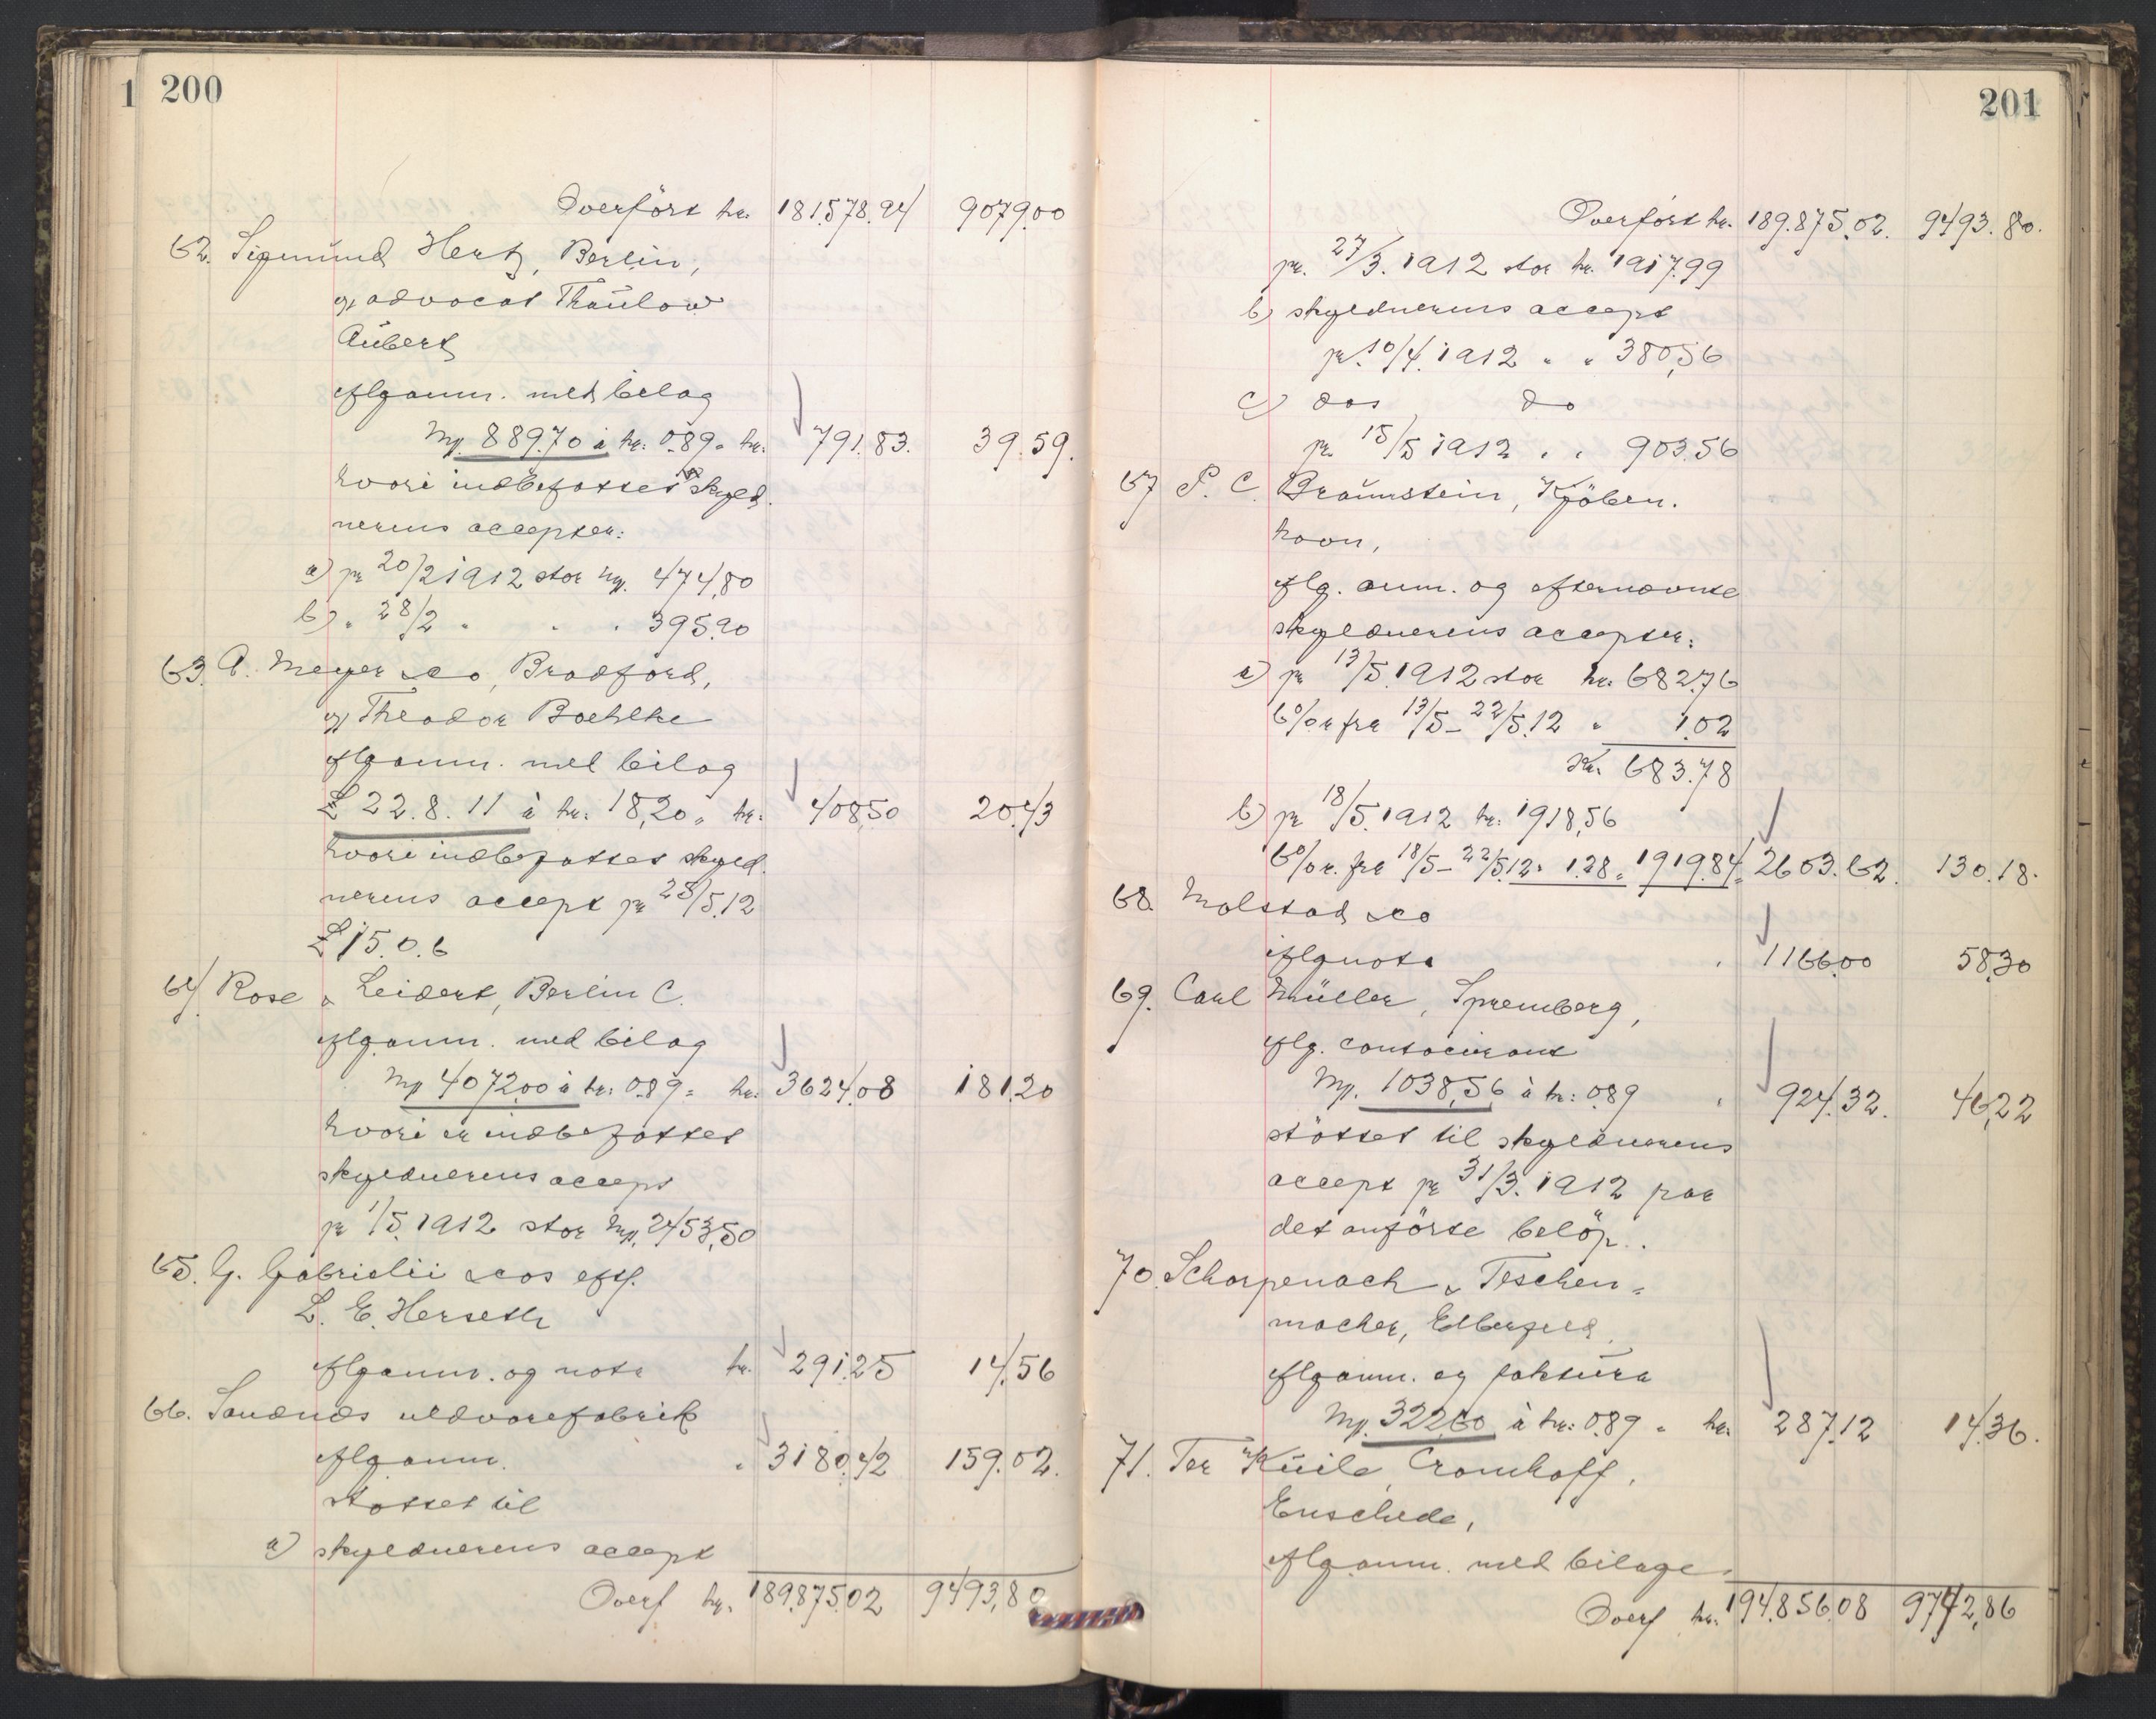 1 200
Overført kr. 181.578.94 9079.00
62. Sigmund Hertz, Berlin,
v/ advocat Thaulow
Aubert
iflg anm. med bilag
Mk. 889.70 à kr. 0.89 = kr. 791.83. 39.59.
hvori indbefattes skyld-
nerens accepter:
a) pr 20/2 1912 stor Mk. 474,80
b) " 28/2 " " " 395.90
63. A. Meyer & Co, Bradford,
v/ Theodor Boehlke
iflg anm. med bilag
£ 22.8.11 à kr. 18,20 = kr. 408,50 20.43
hvori indbefattes skyld-
nerens accept pr 25/5.12
£ 15.0.6
64. Rose & Leidert, Berlin C.
iflg anm. med bilag
Mk 4072.00 à kr. 0.89 = kr. 3624.08 181.20
hvori er indbefattet
skyldnerens accept
pr 1/5. 1912 stor Mk. 2453,50
65. G. Gabrielii & Cos eftf.
L. E. Herseth
iflg anm. og nota kr. 291.25 14.56
66. Sandnes uldvarefabrik
iflg anm. " 3180.42 159.02.
støttet til
a) skyldnerens accept
Overf kr. 189.875.02 9493,80
201
Overført kr. 189.875.02. 9493.80.
pr. 27/3. 1912 stor kr. 1917.99
b) skyldnerens accept
pr. 10/4. 1912 " " 380,56
c) dos do
pr 15/5 1912 " " 903.56
67 P. C. Braunstein, Kjöben-
havn,
iflg. anm. og efternævnte
skyldnerens accepter:
a) pr 13/5. 1912 stor kr. 682.76
6% r fra 13/5 - 22/5.12 " 1.02
Kr. 683.78
b) pr 18/5. 1912 kr. 1918,56
6% r. fra 18/5 - 22/5.12 " 1.28 = 1919.84 = 2603.62. 130.18.
68. Molstad & Co
iflg nota " 1166.00 58.30
69. Carl Müller, Spremberg,
iflg. contocirant
Mk. 1038,56 à kr. 0.89 " 924.32. 46,22
støttet til skyldnerens
accept pr 31/3. 1912 paa
det anførte beløp.
70. Scharpenach & Teschen-
macher, Elberfeld,
iflg anm. og faktura
Mk. 322,60 à kr. 0.89 = kr. 287.12 14.36.
71. Ter Kuile Cromhoff,
Enschede,
iflg anm. med bilage
Overf kr. 194.856.08 9742,86